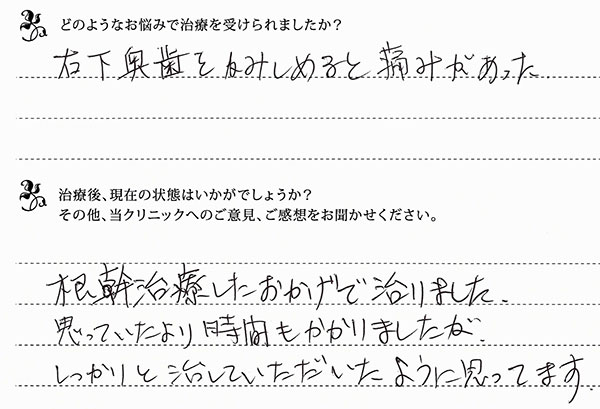 どのようなお悩みで治療を受けられましたか？
右下奥歯をかみしめると痛みがあった
治療後、現在の状態はいかがでしょうか？
その他、当クリニックへのご意見、ご感想をお聞かせください。
根幹治療したおかげで治りました。
思っていたより時間もかかりましたが、
しっかりと治していただいたように思ってます。